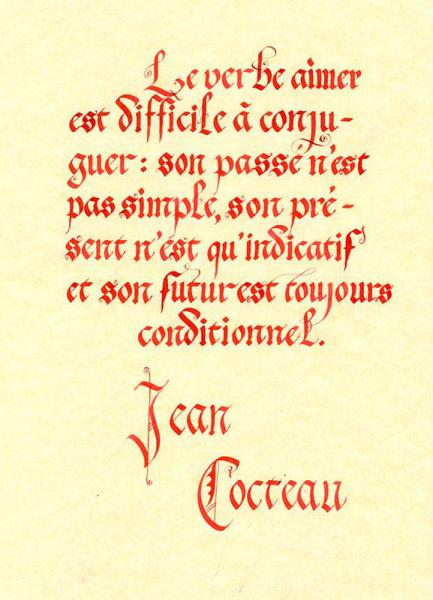 Le verbe aimer
est difficile à conju-
guer: son passé n'est
pas simple, son pré-
sent n'est qu'indicatif
et son futur est toujours
conditionnel.
Jean
Cocteau